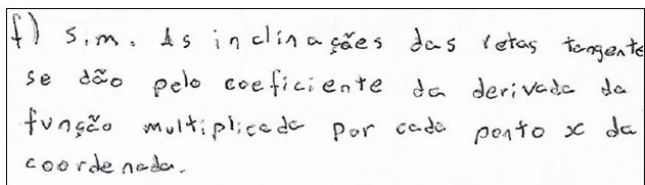 f) Sim. As inclinações das retas tangente
se dão pelo coeficiente da derivada da
função multiplicada por cada ponto x da
coordenada.